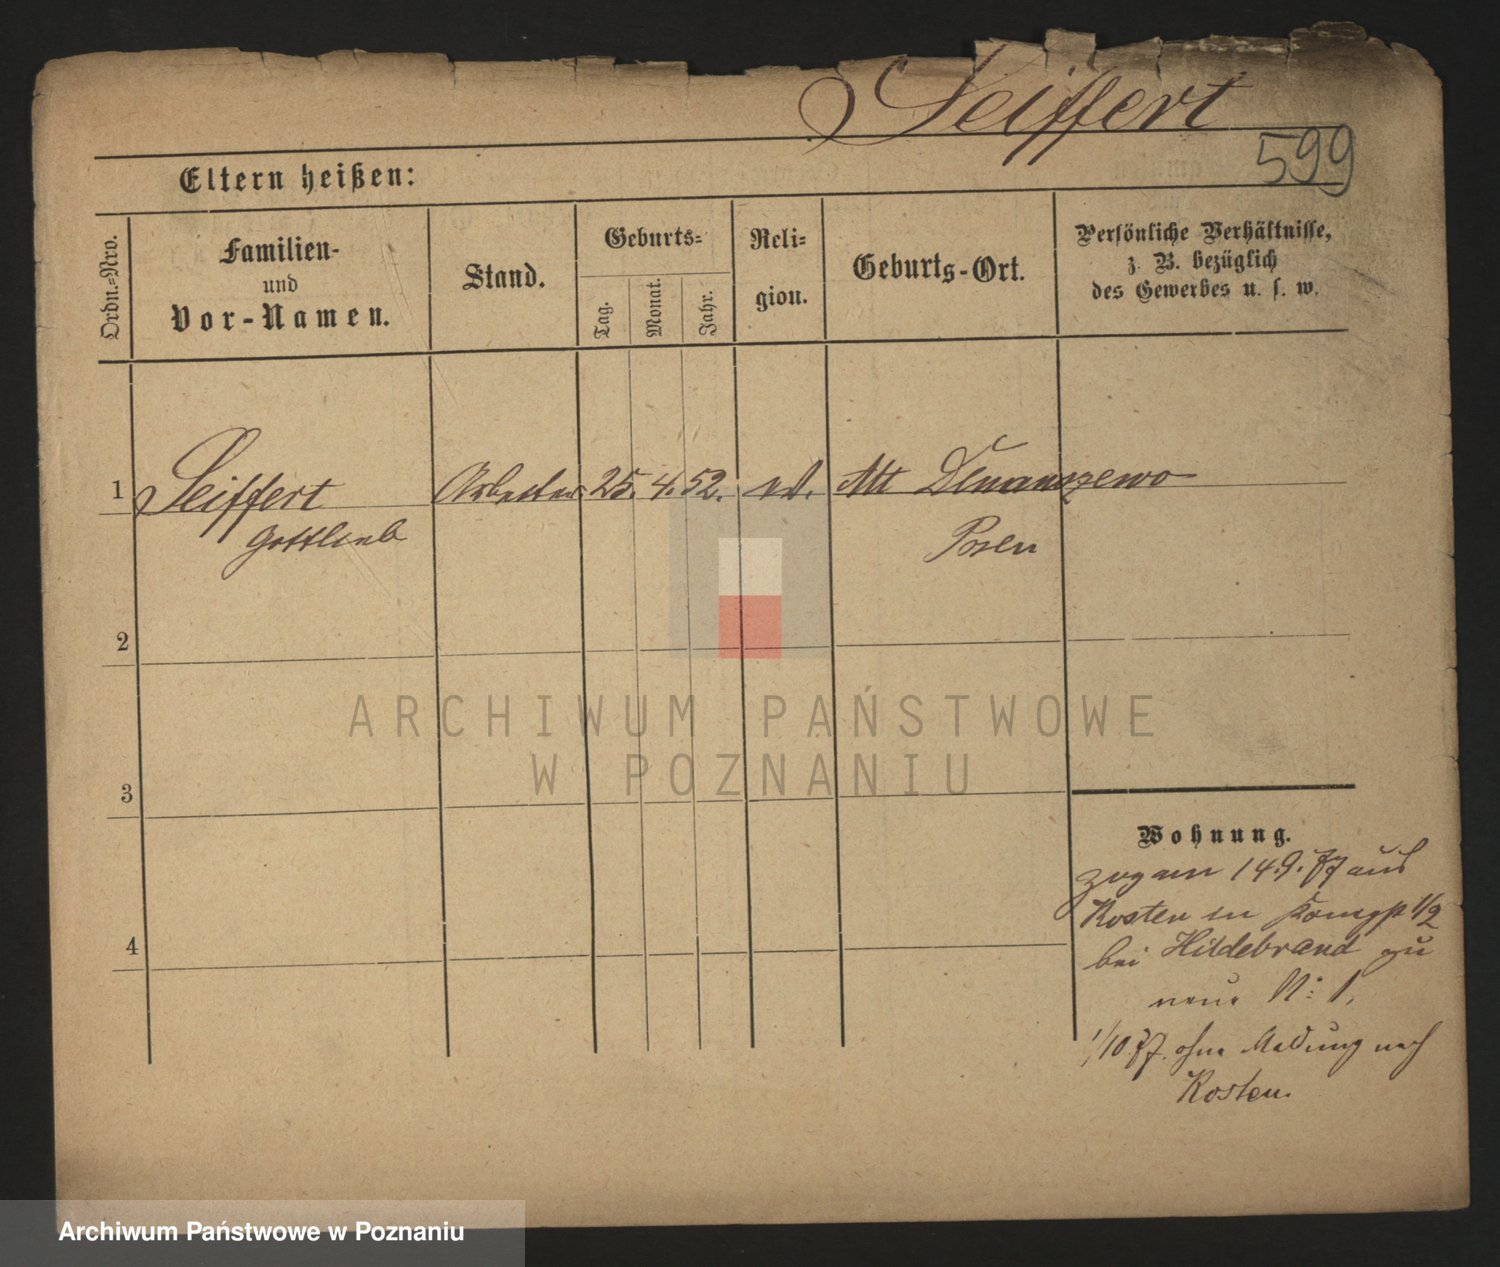 Seiffert
599
Eltern heißen:
Ordn.-Nro.
Familien-
und
Vor-Namen.
Stand.
Geburts-
Tag.
Monat.
Jahr.
Reli-
gion.
Geburts-Ort.
Persönliche Verhältnisse,
z. B. bezüglich
des Gewerbes u. s. w.
1 Seiffert Arbeiter 25. 4. 52. ev. Alt
Gottlieb
Posen
2
3
4
Wohnung.
zog am 14.9.77 aus
Kosten in 1/2
bei Hildebrand
neue No: 1,
1/10.77. ohne Meldung nach
Kosten.
ARCHIWUM PAŃSTWOWE
W POZNANIU
Archiwum Państwowe w Poznaniu